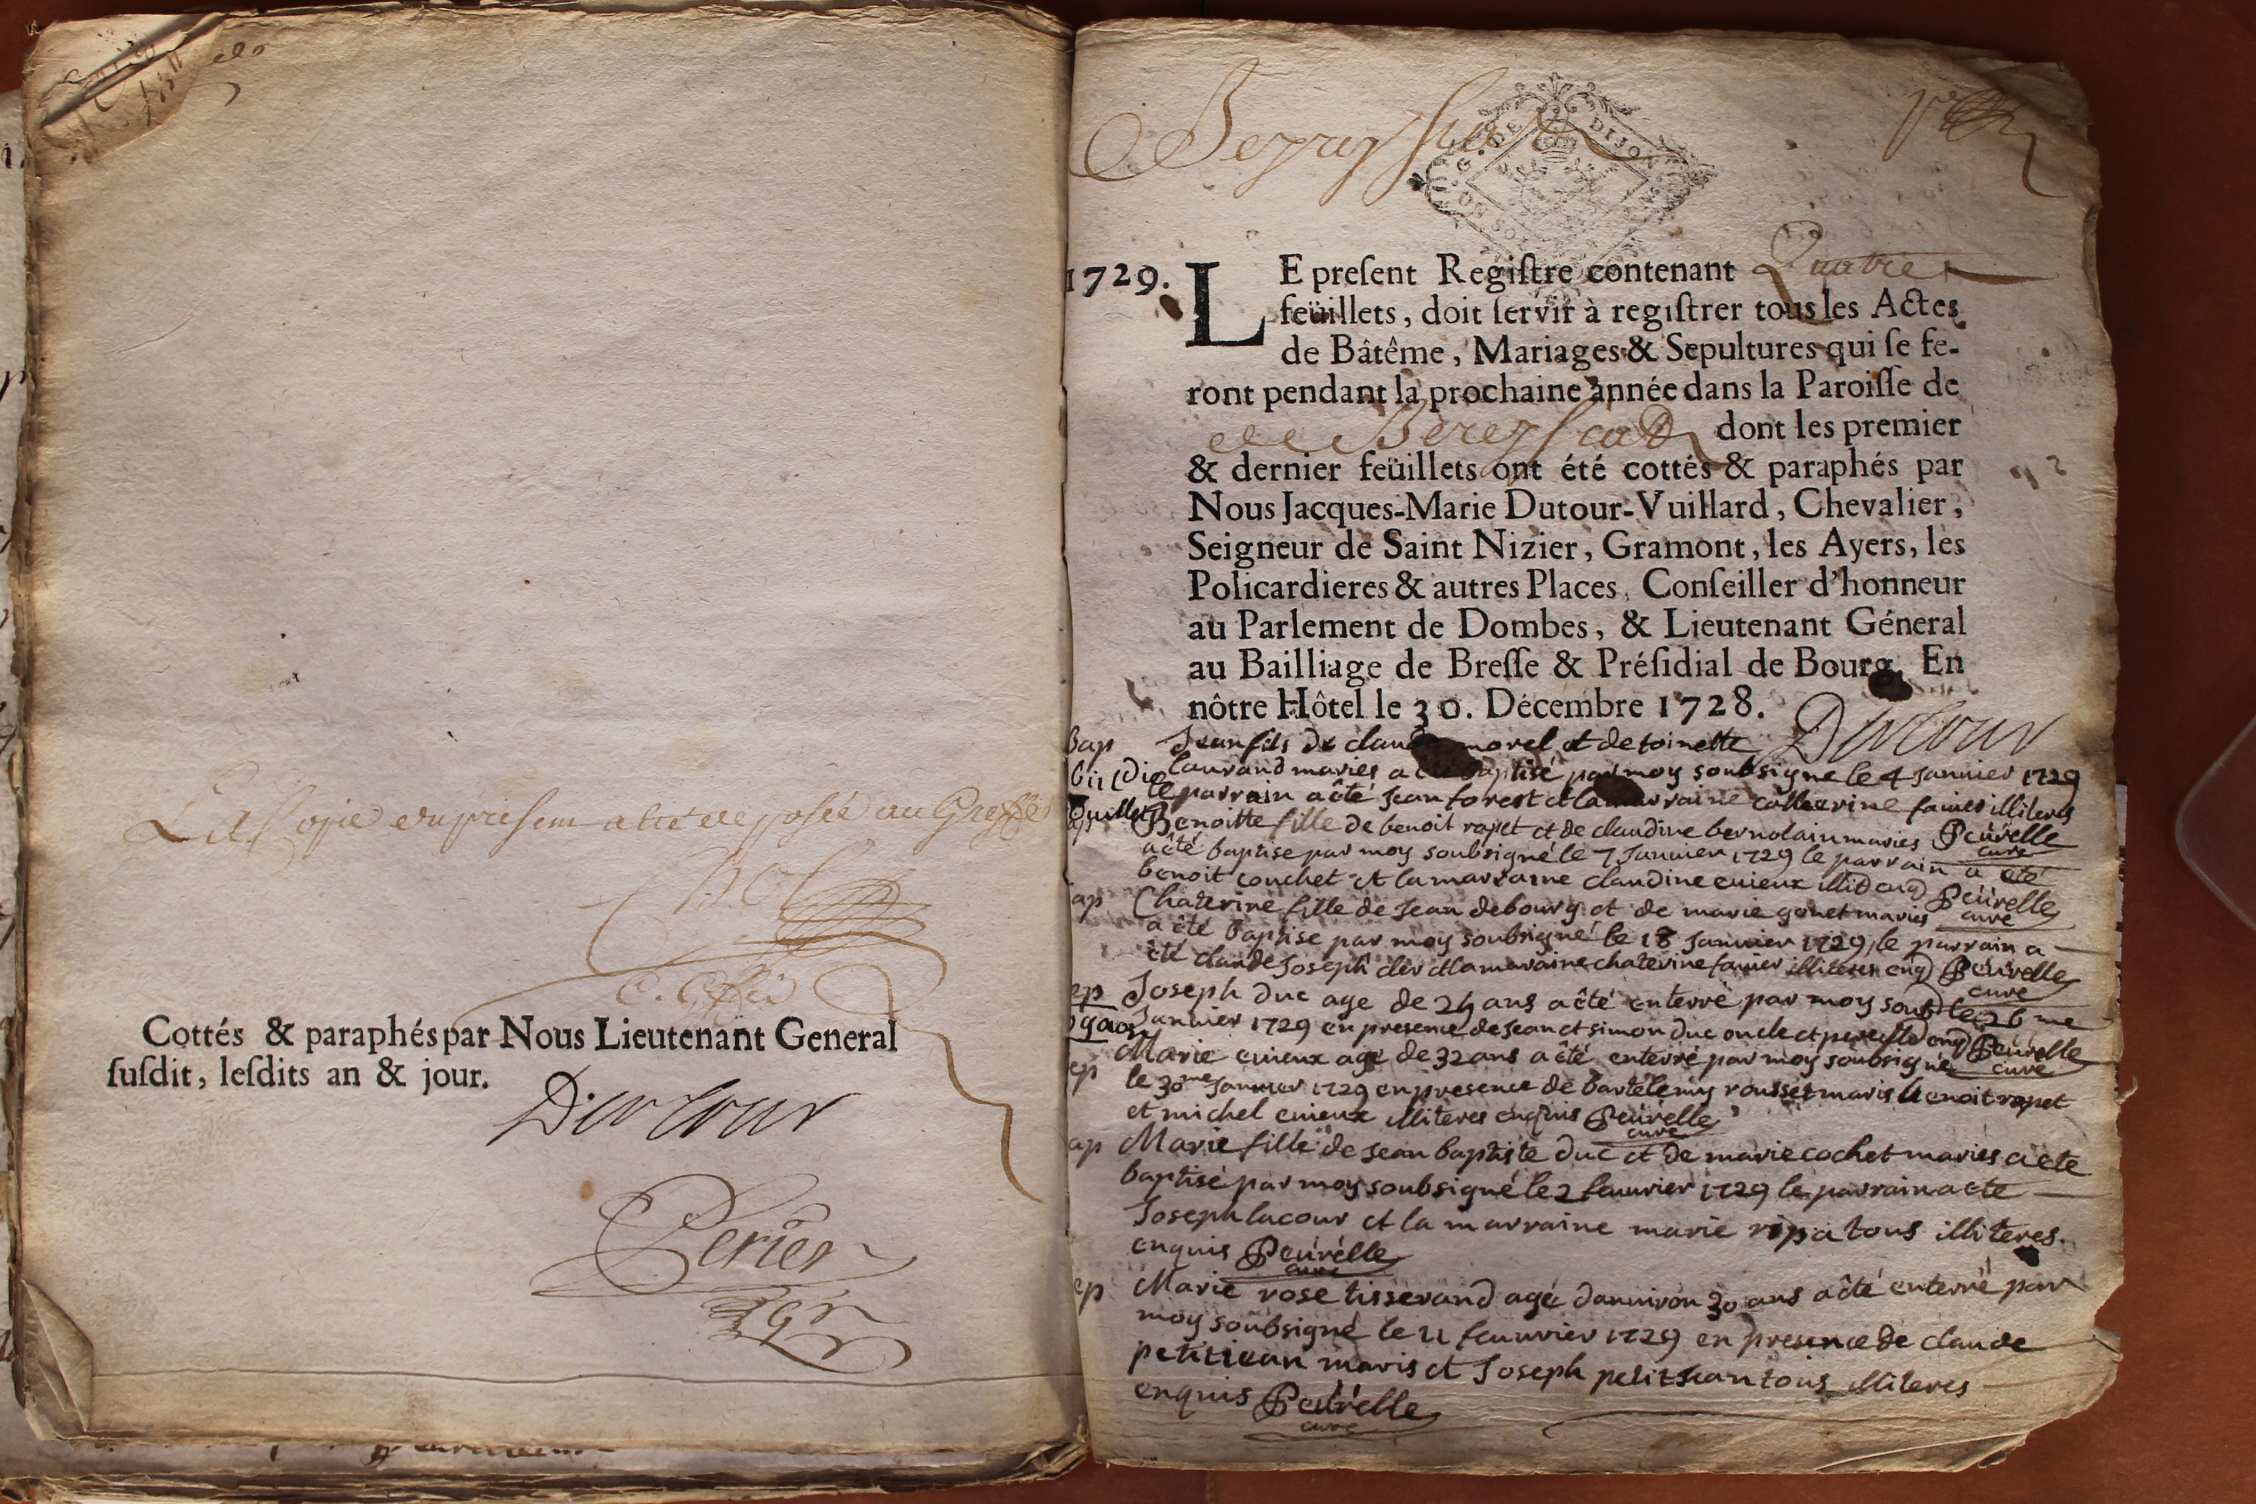 La Copie du present a été deposée au Greffe
Cottés & paraphés par Nous Lieutenant General
susdit, lesdits an & jour.
Dutour
Perier
G. DE DIJON
1729.
LE present Registre contenant Quatre
feüillets, doit servir à registrer tous les Actes
de Bâtême, Mariages & Sepultures qui se fe-
ront pendant la prochaine année dans la Paroisse de
de Bereyziat dont les premier
& dernier feüillets ont été cottés & paraphés par
Nous Jacques-Marie Dutour-Vuillard, Chevalier,
Seigneur de Saint Nizier, Gramont, les Ayers, les
Policardieres & autres Places, Conseiller d'honneur
au Parlement de Dombes, & Lieutenant Géneral
au Bailliage de Bresse & Présidial de Bourg. En
nôtre Hôtel le 30. Décembre 1728.
Dutour
Bap Jean fils de claude morel et de toinette
laurand mariés a été baptisé par moy soubsigne le 4 Janvier 1729
le parrain a été Jean forest et la marraine catherine illiteres
Benoitte fille de benoit rapet et de claudine bernolain mariés Peurelle
curé
a été baptise par moy soubsigné le 7 Janvier 1729 le parrain a été
benoit couchet et la marraine claudine cuieux illit enq Peurelle
curé
ap Chaterine fille de Jean debourg et de marie gonet mariés
a été baptise par moy soubsigné le 18 Janvier 1729, le parrain a
été claude Joseph clér et la maraine chaterine illiteres enq Peurelle
curé
ep Joseph duc age de 24 ans a été enterré par moy soub le 26 me
Janvier 1729 en presence de Jean et simon duc oncle et pere enq Peurelle
curé
ep Marie cuieux age de 32 ans a été enterré par moy soubsigné
le 30me Janvier 1729 en presence de bartelemy rousset maris benoit rapet
et michel cuieux illiteres enquis Peurelle
curé
ap Marie fille de Jean baptiste duc et de marie cochet mariés a ete
baptisé par moy soubsigné le 2 fauvrier 1729 le parrain a ete
Joseph lacour et la marraine marie ripa tous illiteres
enquis Peurelle
curé
ep Marie rose tisserand agé danviron 30 ans a été enterré par
moy soubsigné le 11 feuvrier 1729 en presence de claude
petitjean maris et Joseph petitJean tous illiteres
enquis Peurelle
curé